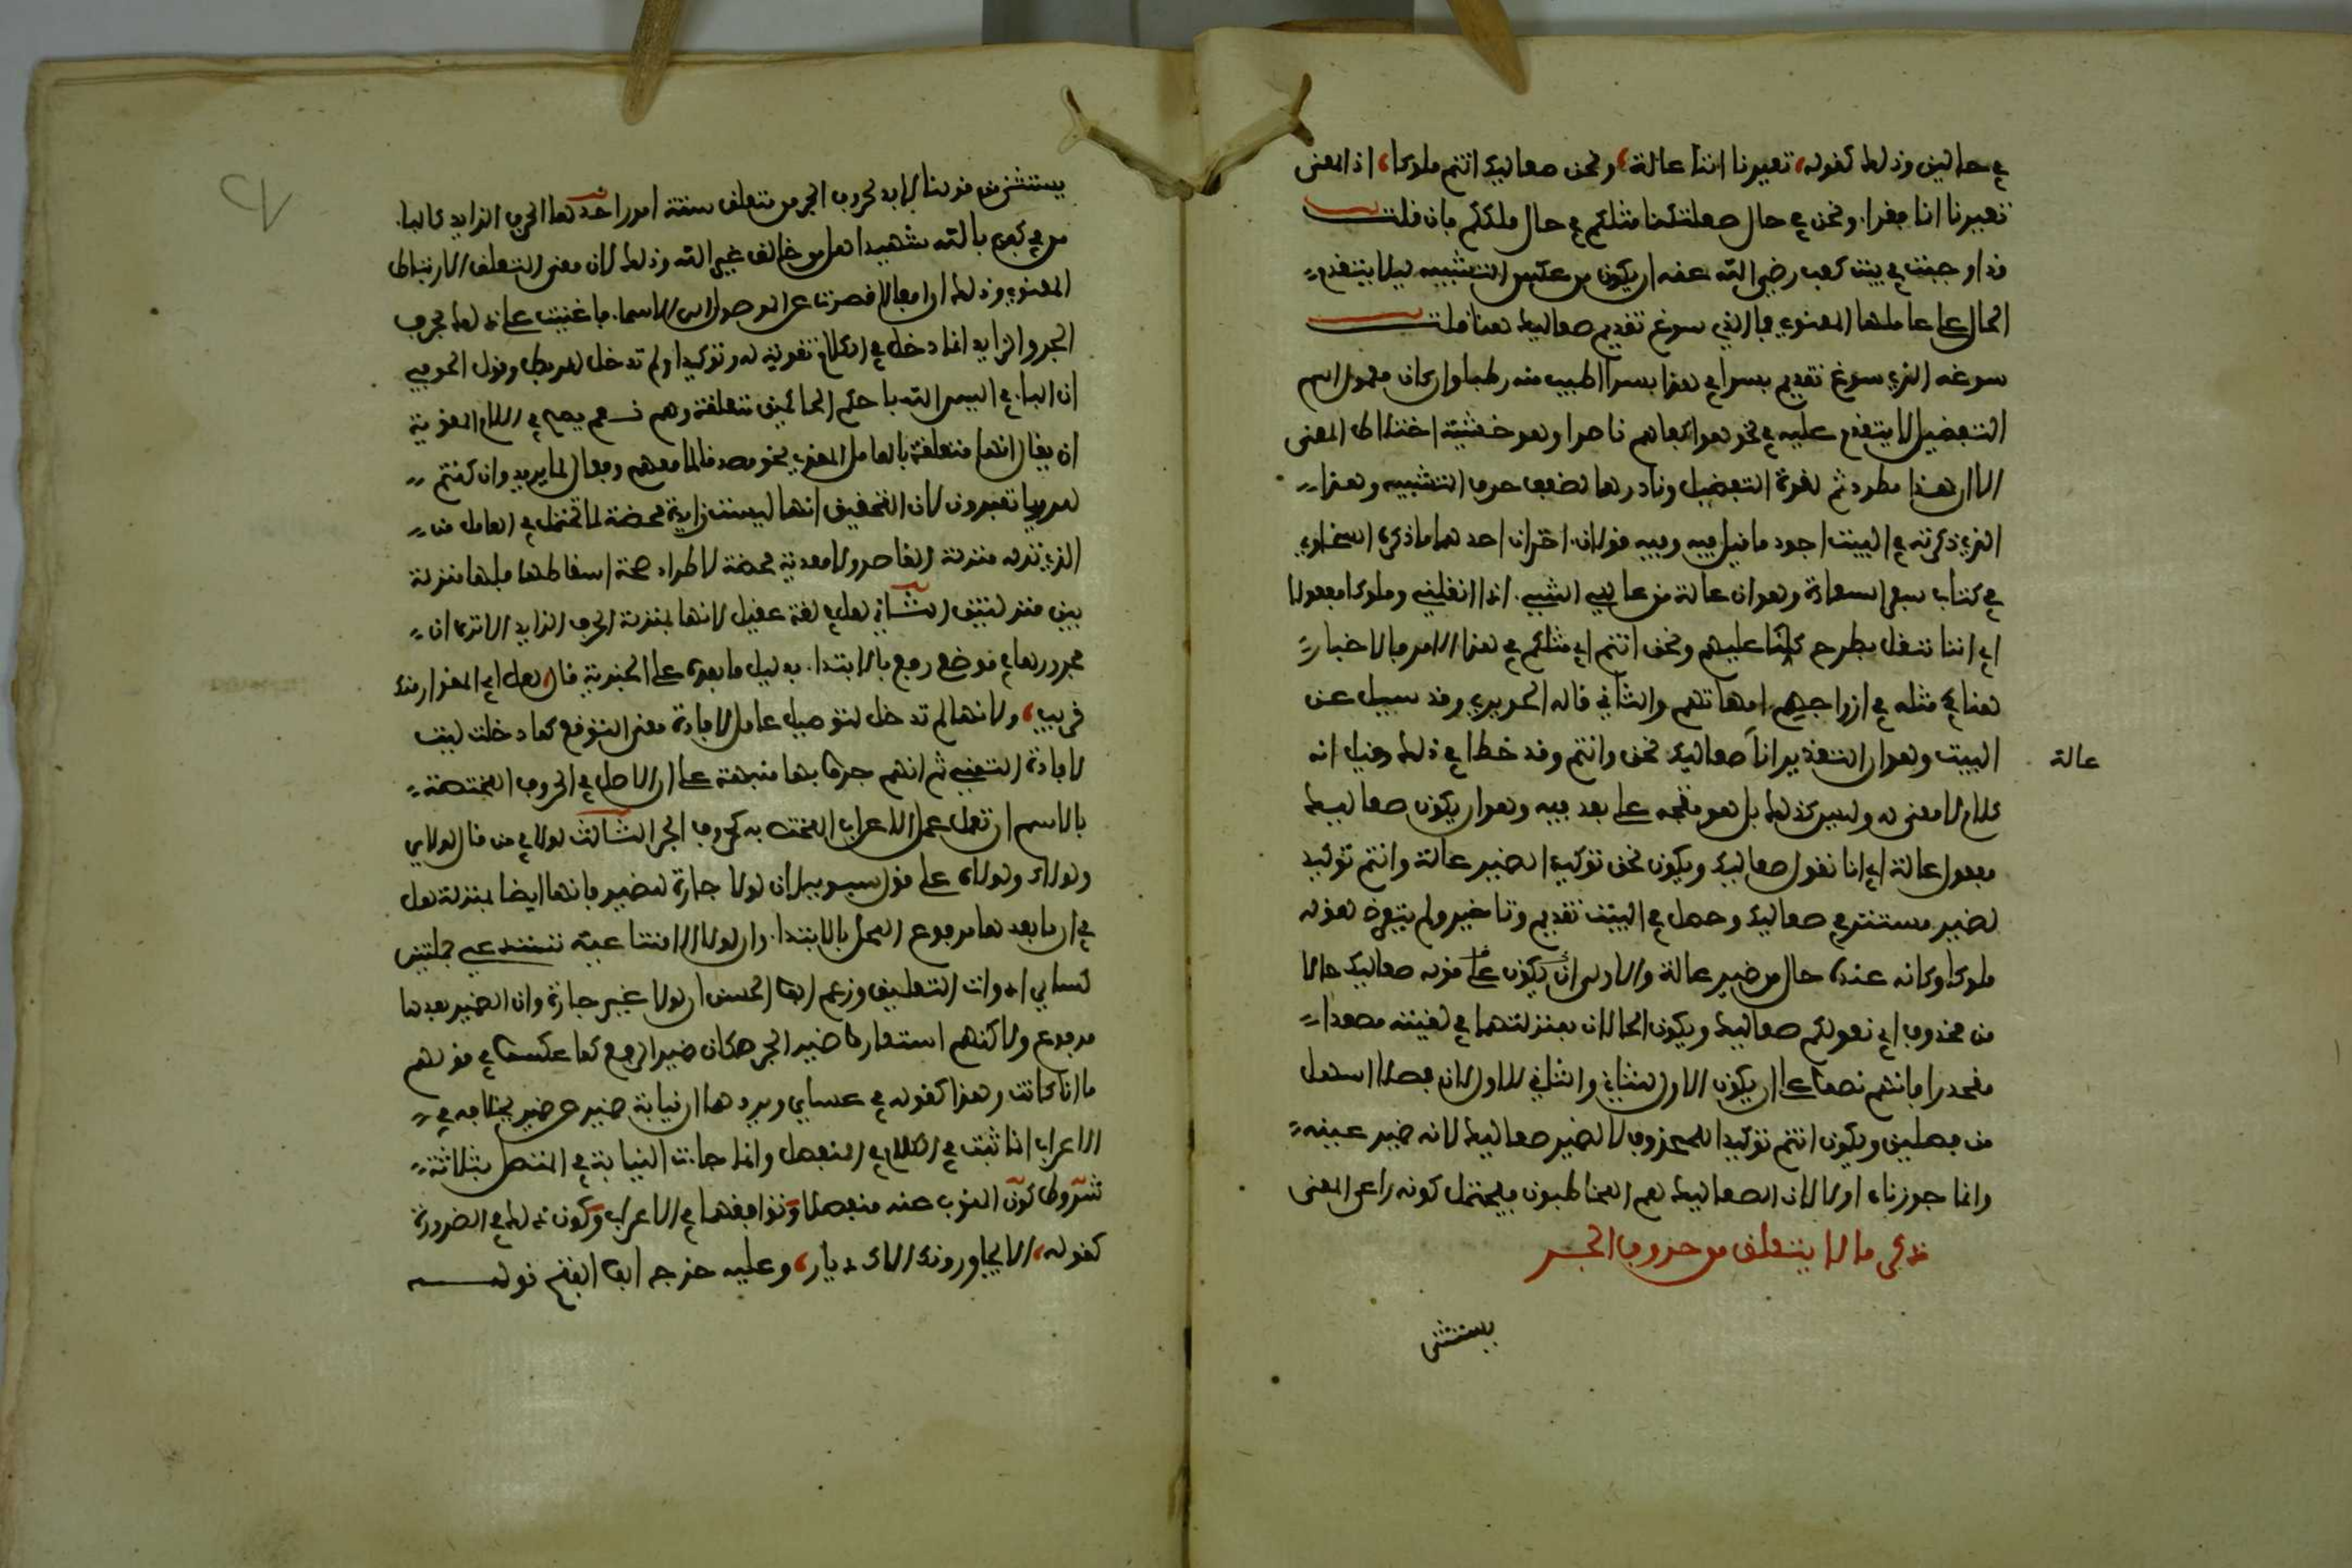 في حالين وذلك كقوله، تعيرنا اننا عالة، ونحن صعاليك انتم ملوكا، اذ المعنى
تعيرنا انا فقرا. ونحن في حال صعلكتنا مثلكم في حال ملككم فان قلت
قد اوجبت في بيت كعب رضي الله عنه ان يكون من عكس التشبيه ليلا يتقدم
الحال على عاملها المعنوي فما الذي سوغ تقديم صعاليك هنا قلت
سوغه الذي سوغ تقديم بسرا في هذا بسرا اطيب منه رطبا وان كان معمول اسم
التفضيل لا يتقدم عليه في نحو هو اكفاهم ناصرا وهو خشية اختلاط المعنى
الا ان هذا مطرد ثم لقوة التفضيل ونادر هنا لضعف حرف التشبيه وهذا
الذي ذكرته في البيت اجود ما قيل فيه وفيه قولان اخران احدهما ما ذكره السخاوي
في كتاب سفر السعادة وهو ان عالة من عالني الشي. اذا اثقلني وملوكا مفعولا
اي اننا نثقل بطرح كلنا عليهم ونحن انتم اي مثلكم في هذا الامر فالاخبار
هنا في مثله في ازواجهم امهاتهم والثاني قاله الحريري وقد سيل عن
البيت وهو ان التقدير انا عالة صعاليك نحن وانتم وقد خطا في ذلك وقيل انه
كلام لا معنى له وليس كذلك بل هو متجه على بعد فيه وهو ان يكون صعاليك
مفعول عالة اي انا نعول صعاليك ويكون نحن توكيدا لضمير عالة وانتم توكيد
لضمير مستتر في صعاليك وحصل في البيت تقديم وتاخير ولم يتعرض لقوله
ملوكا وكانه عنده حال من ضمير عالة والاولى ان يكون على قوله صعاليك حالا
من محذوف اي نعولكم صعاليك ويكون الحالان بمنزلتهما في لقيته مصعدا
منحدرا فانهم نصوا على ان يكون الاول للثاني والثاني للاول لان فصلا اسهل
من فصلين ويكون انتم توكيدا للمحذوف لا لضمير صعاليك لانه ضمير غيبة
وانما جوزناه اولا لان الصعاليك هم المخاطبون فيحتمل كونه راعى المعنى
ذكر ما لا يتعلق من حروف الجر
يستثنى
عالة
يستثنى من قولنا لا بد لحروف الجر من متعلق ستة امور احدها الحرف الزايد كالبا.
من في كفى بالله شهيدا هل من خالق غير الله وذلك لان معنى التعلق الارتباط
المعنوي وذلك ان افعالا قصرت عن الوصول الى الاسما. فاعينت على ذلك بحروف
الجر والزايد انما دخل في الكلام تقوية له وتوكيدا ولم تدخل للربط وقول الحوفي
ان البا. في اليس الله باحكم الحاكمين متعلقة وهم نعم يصح في اللام المقوية
ان يقال انها متعلقة بالعامل المقوى نحو مصدقا لما معهم وفعال لما يريد وان كنتم
للرويا تعبرون لان التحقيق انها ليست زايدة محضة لما تخيل في العامل من
الذي نزله منزلة القاصر ولا معدية محضة لاطراد صحة اسقاطها فلها منزلة
بين منزلتين الثاني لعل في لغة عقيل لانها بمنزلة الحرف الزايد الا ترى ان
مجرورها في موضع رفع بالابتدا. بدليل ما بعده على الخبرية قال، لعل ابي المغوار منك
قريب، ولانها لم تدخل لتوصيل عامل لافادة معنى التوقع كما دخلت ليت
لافادة التمني ثم انهم جروا بها منبهة على ان الاصل في الحروف المختصة
بالاسم ان تعمل عمل الاعراب المختص به كحروف الجر الثالث لولا في من قال لولاي
ولولاك ولولاه على قول سيبويه ان لولا جارة للضمير فانها ايضا بمنزلة لعل
في ان ما بعدها مرفوع المحل بالابتدا. وان لولا الامتناعية تستدعي جملتين
كساير ادوات التعليق وزعم ابو الحسن ان لولا غير جارة وان الضمير بعدها
مرفوع ولاكنهم استعاروا ضمير الجر مكان ضمير الرفع كما عكسوا في قولهم
ما انا كانت وهذا كقوله في عساي ويردهما ان نيابة ضمير عن ضمير يخالفه في
الاعراب انما ثبت في الكلام في المنفصل وانما جات النيابة في المتصل بثلاثة
شروط كون المنوب عنه منفصلا وتوافقهما في الاعراب وكون ذلك في الضرورة
كقوله، الا يجاورنا الاك ديار، وعليه خرج ابو الفتح قوله